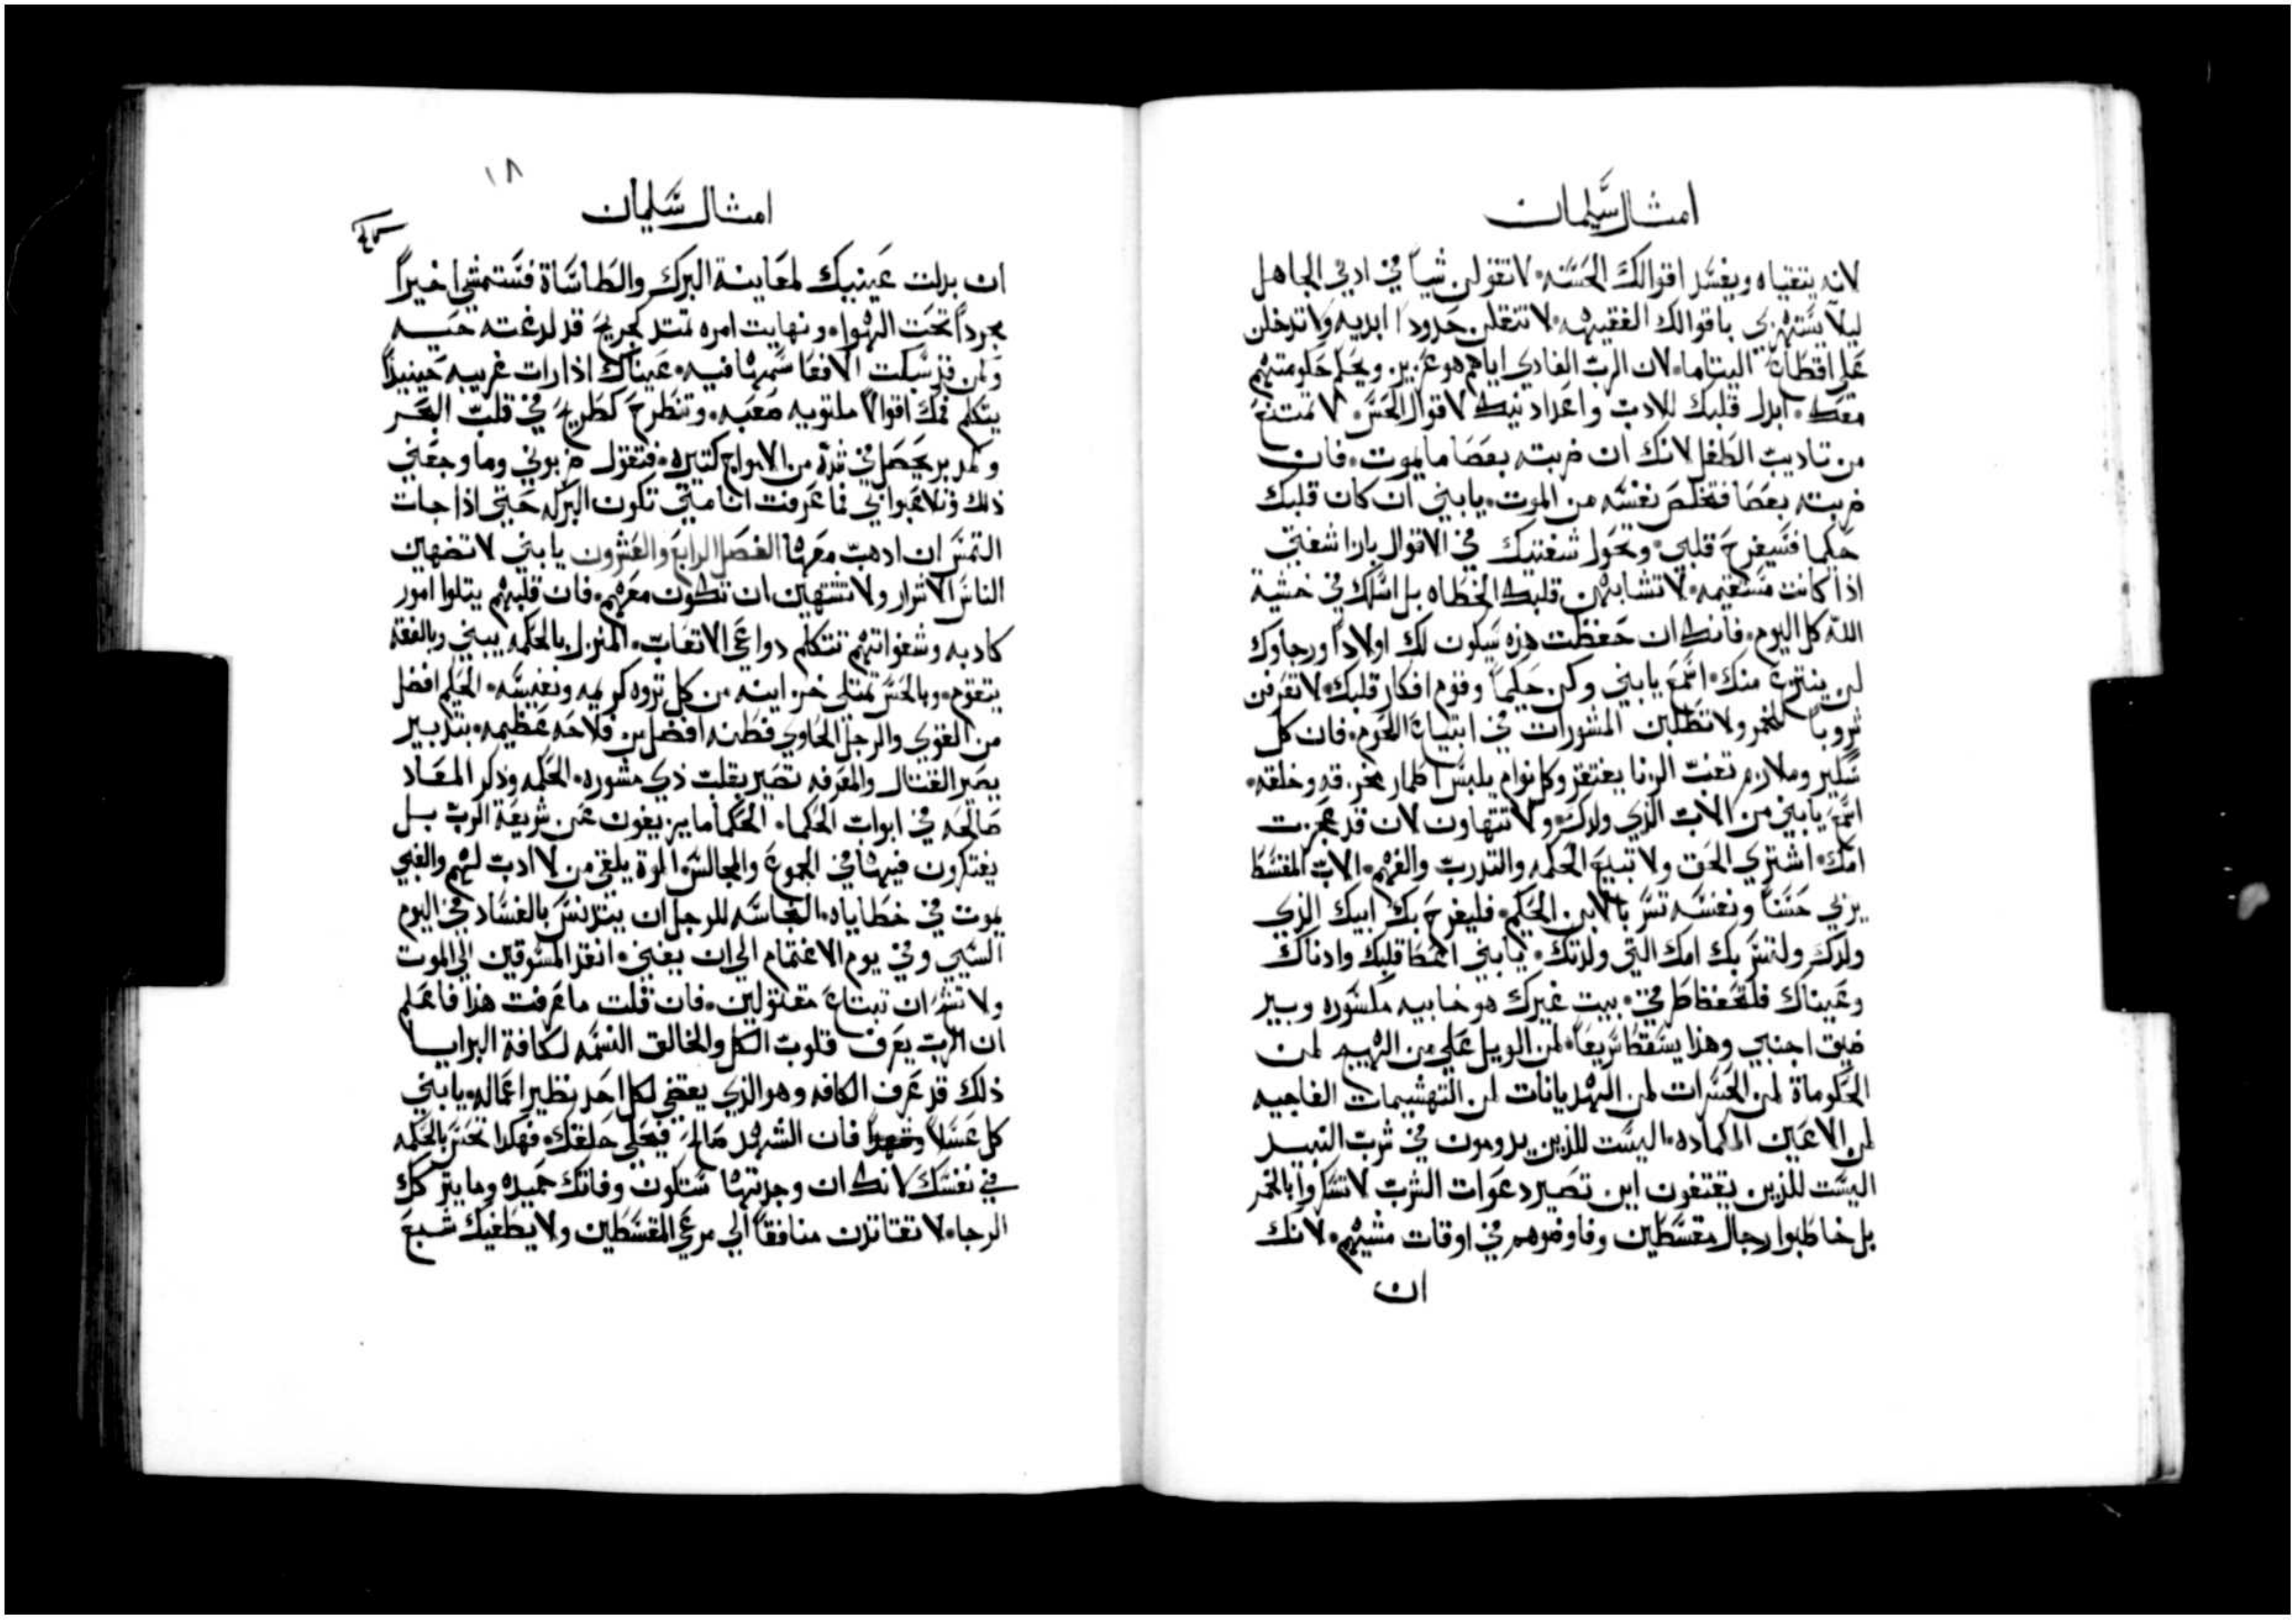 امثال سليمان
لانه يتقياه ويفسد اقوالك الحسنه لا تقولن شياً في ادني الجاهل
ليلا يستهزي باقوالك الفقيهه لا تنقلن حدودا ابديه ولا تدخلن
علي اقطاان اليتاما لان الرب الفادي اياهم هو عزيز ويحكم حكومتهم
معك ابدل قلبك للادب واعداد نيك لاقوال الحس لا تمتنع
من تاديب الطفل لانك ان ضربته بعصا ما يموت فان
ضربته بعصا فتخلص نفسه من الموت يا بني ان كان قلبك
حكما فسيفرح قلبي وتحول شفتيك في الاقوال بازا شفتي
اذا كانت مستقيمه لا تشابهن قلبك الخطاه بل اسلك في خشية
الله كل اليوم فانك ان حفظت هذه سيكون لك اولادا ورجاوك
لن ينتزع منك اسمع يا بني وكن حكيماً وقوم افكار قلبك لا تعرفن
شروباً للخمر ولا تطلبن المشورات في ابتياع اللحوم فان كل
سكير وملازم تعنت الزنا يفتقر وكل نوام يلبس اطمار مخرقه وخلقه
اسمع يا بني من الاب الذي ولدك ولا تتهاون لان قد عجزت
امك اشتري الحق ولا تبيع الحكمه والتدرب والفهم الاب المقسط
يربي حسناً ونفسه تسر بالابن الحكيم فليفرح بك ابيك الذي
ولدك ولتسر بك امك التي ولدتك يا بني اعطا قلبك وادناك
وعيناك فلتحفظ طرقي بيت غيرك هو خابيه مكسوره وبير
ضيق اجنبي وهذا يسقط سريعاً لمن الويل علي من الهيم لمن
الحكوماة لمن الحسرات لمن الهديانات لمن التهشيمات الفاجيه
لمن الاعين الكماده اليست للذين يدومون في شرب النبيد
اليست للذين يقتفون اين تصير دعوات الشرب لا تسكروا بالخمر
بل خاطبوا رجال مقسطين وفاوضوهم في اوقات مشيهم لانك
ان
١٨
امثال سليمان
ان بدلت عينيك لمعاينة البرك والطاساة فستمشي اخيراً
مجرداً تحت الهوا ونهايت امره تمتد كجريح قد لدغته حيه
ولمن قد سبكت الافعا سمها فيه عيناك اذا رات غريبه حينيداً
يتكلم فمك اقوالاً ملتويه صعبه وتنطرح كطريح في قلب البحر
وكمدبر يحصل في شدة من الامواج كتيره فتقول ضربوني وما وجعني
ذلك وتلاعبوا بي فما عرفت انا متي تكون البركه حتي اذا جات
التمس ان ادهب معها الفصل الرابع والعشرون يا بني لا تضهين
الناس الاشرار ولا تشتهين ان تكون معهم فان قلبهم يتلوا امور
كادبه وشفواتهم تتكلم دواعي الاتعاب المنزل بالحكمه يبني وبالفقه
يتقوم وبالحس تمتلي خزاينه من كل ثروه كريمه ونفيسه الحكيم افضل
من القوي والرجل الحاوي فطنه افضل من فلاحه عظيمه بتدبير
يصير القتال والمعرفه تصير بقلب ذي مشوره الحكمه وذكر المعاد
صالحه في ابواب الحكما الحكما ما يزيغون عن شريعة الرب بل
يفتكرون فيها في الجموع والمجالس الموة يلقي من لا ادب لهم والغبي
يموت في خطاياه النجاسه للرجل ان يتدنس بالفساد في اليوم
السي وفي يوم الاغتمام الي ان يفني انقد المسوقين الي الموت
ولا تشر ان تبتاع مقتولين فان قلت ما عرفت هذا فاعلم
ان الرب يعرف قلوب الكل والخالق النسمه لكافة البرايا
ذلك قد عرف الكافه وهو الذي يعضي لكل احد نظير اعماله يا بني
كل عسلاً وشهدا فان الشهد صالح فيحلي حلقك فهكدا تحس بالحكمه
في نفسك لانك ان وجدتها ستكون وفاتك حميده وما يتركك
الرجا لا تقتادن منافقاً الي مرعي المقسطين ولا يطغيك شبع